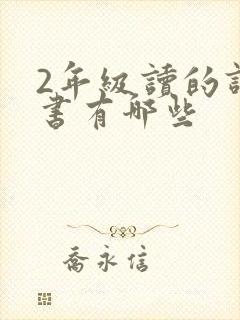 2年級讀的
書有哪些
喬永信